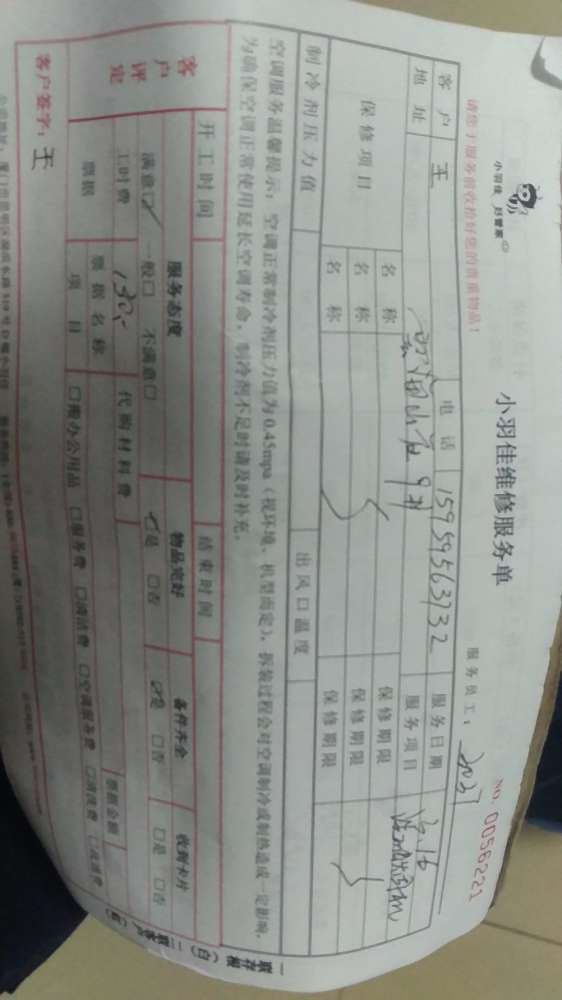 小羽佳 好管家
小羽佳维修服务单
NO. 0056221
请您于服务前收拾好您的贵重物品！
服务员工：
客户 王 电话 15959563732 服务日期
地址 服务项目
保修项目 名称 保修期限
名称 保修期限
名称 保修期限
制冷剂压力值 出风口温度
空调服务温馨提示：空调正常制冷剂压力值为0.45mpa（视环境、机型而定），拆装过程会对空调制冷或制热造成一定影响，
为确保空调正常使用延长空调寿命，制冷剂不足时请及时补充。
开工时间 结束时间
客户评定 服务态度 物品完好 备件齐全 收到卡片
满意☑ 一般□ 不满意□ ☑是 □否 ☑是 □否 □是 □否
工时费 130- 代购材料费
票据 票据名称 票据金额
项目 □购办公用品 □服务费 □清洁费 □空调服务费 □清洗费 □维修费
客户签字：王
一联存根（白） 二联客户（红）